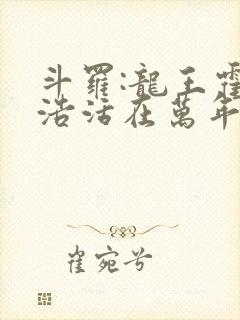 斗羅:龍王霍
浩活在萬年
崔宛兮